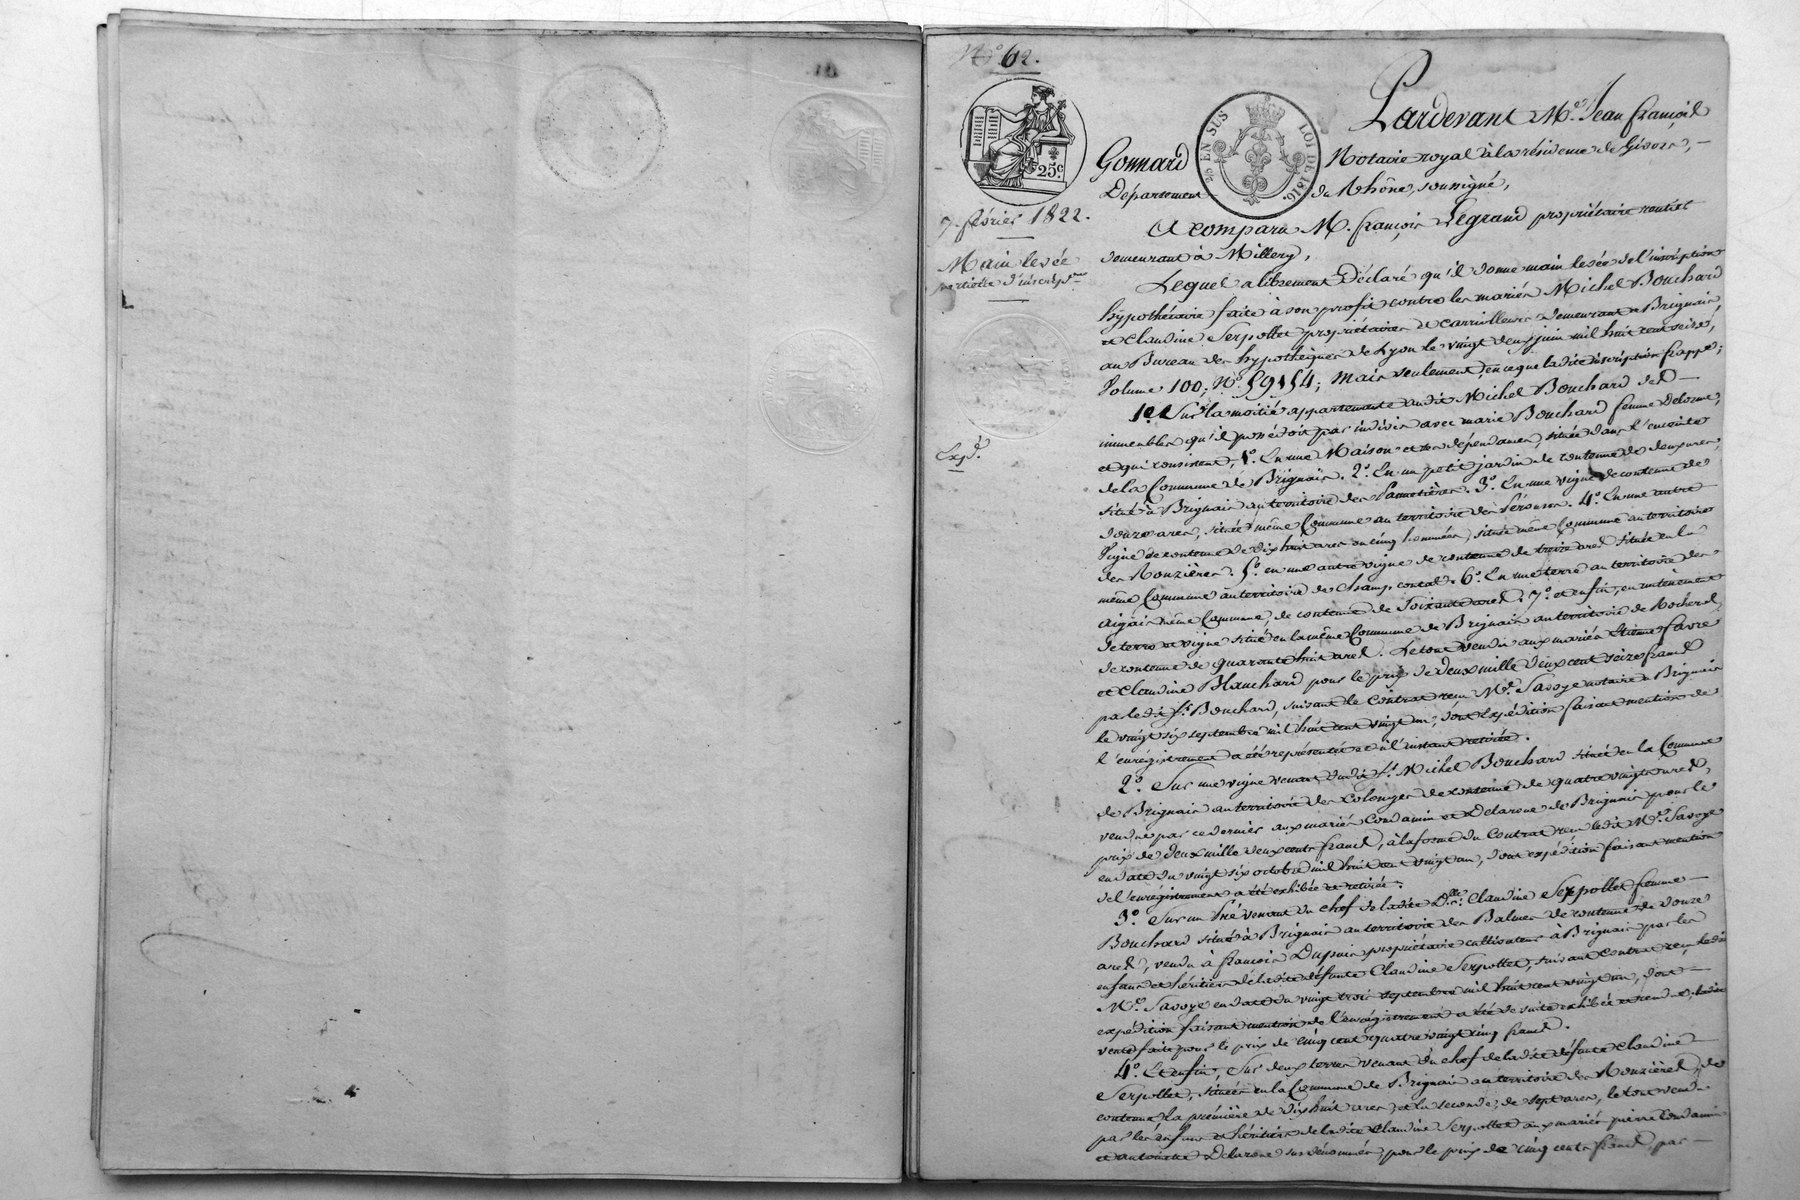 N° 62.
Pardevant Me. Jean françois
25 EN SUS
LOI DE 1816.
25c
Gonnard Notaire royal à la résidence de Givors, —
Département du Rhône, soussigné,
7. février 1822.
A comparu M. françois Legrand propriétaire rentier
demeurant à Millery,
Main levée
partielle d'inscrip.on
Lequel a librement Déclaré qu'il donne main levée de l'inscription
hypothécaire faite à son profit contre les mariés Michel Bouchard
et Claudine Serpollet propriétaires et carrilleurs demeurant à Brignais,
au Bureau des hypothèques de Lyon le vingt deux juin mil huit cent seize,
Volume 100, N°. 59154; Mais seulement, en ce que ladite inscription frappe;
1°. Sur la moitié appartenante audit Michel Bouchard des —
immeubles qu'il possédoit par indivis avec marie Bouchard femme Delorme,
Exp.d
et qui consistent, 1°. En une Maison et ses dépendances, située dans l'enceinte
de la Commune de Brignais. 2°. En un petit jardin de contenue de deux ares,
situé à Brignais au territoire des 3°. En une vigne de contenue de
douze ares, située même Commune au territoire des 4°. En une autre
Vigne de contenue de dix huit ares ou cinq hommées, située même Commune au territoire
des Rouzières. 5°. en une autre vigne de contenue de treize ares située en la
même Commune au territoire de Champ contal. 6°. En une terre au territoire des
aigais même Commune, de contenue de soixante ares. 7°. et enfin, en un tènement
de terre et vigne situé en la même Commune de Brignais au territoire de Rocheres,
de contenue de quarante huit ares. Le tout vendu aux mariés Etienne favre
et Claudine Blanchard pour le prix de deux mille deux cent seize francs
par ledit Sr. Bouchard, suivant le Contrat reçu Me. Savoye notaire à Brignais
le vingt six septembre mil huit cent vingt un, dont Expédition faisant mention de
l'enregistrement a été représentée et à l'instant retirée.
2°. Sur une vigne venant dudit Sr. Michel Bouchard située en la Commune
de Brignais au territoire des Colonges de contenue de quatre vingt ares,
vendue par ce dernier aux mariés Condamin et Delarone de Brignais pour le
prix de deux mille deux cents francs, à la forme du Contrat reçu ledit Me. Savoye
en date du vingt six octobre mil huit cent vingt un, dont expédition faisant mention
de l'enregistrement a été exhibée et retirée.
3°. Sur un Pré venant du chef de ladite D.lle Claudine Serpollet femme —
Bouchard situé à Brignais au territoire des Balmes de contenue de douze
ares, vendu à françois Dupuis propriétaire cultivateur à Brignais par les
enfans et héritiers de ladite défunte Claudine Serpollet, suivant contrat reçu ledit
Me. Savoye en date du vingt trois septembre mil huit cent vingt un, dont —
expédition faisant mention de l'enregistrement a été de suite exhibée et rendue; ladite
vente faite pour le prix de cinq cent quatre vingt cinq francs.
4°. Et enfin, Sur deux terres venant du chef de ladite défunte Claudine —
Serpollet, situées en la Commune de Brignais au territoire des Rouzières, de
contenue, la première de dix huit ares, et la seconde, de sept ares, le tout vendu
par les enfans et héritiers de ladite Claudine Serpollet aux mariés pierre Condamin
et antoinette Delarone sus dénommés, pour le prix de cinq cents francs par —